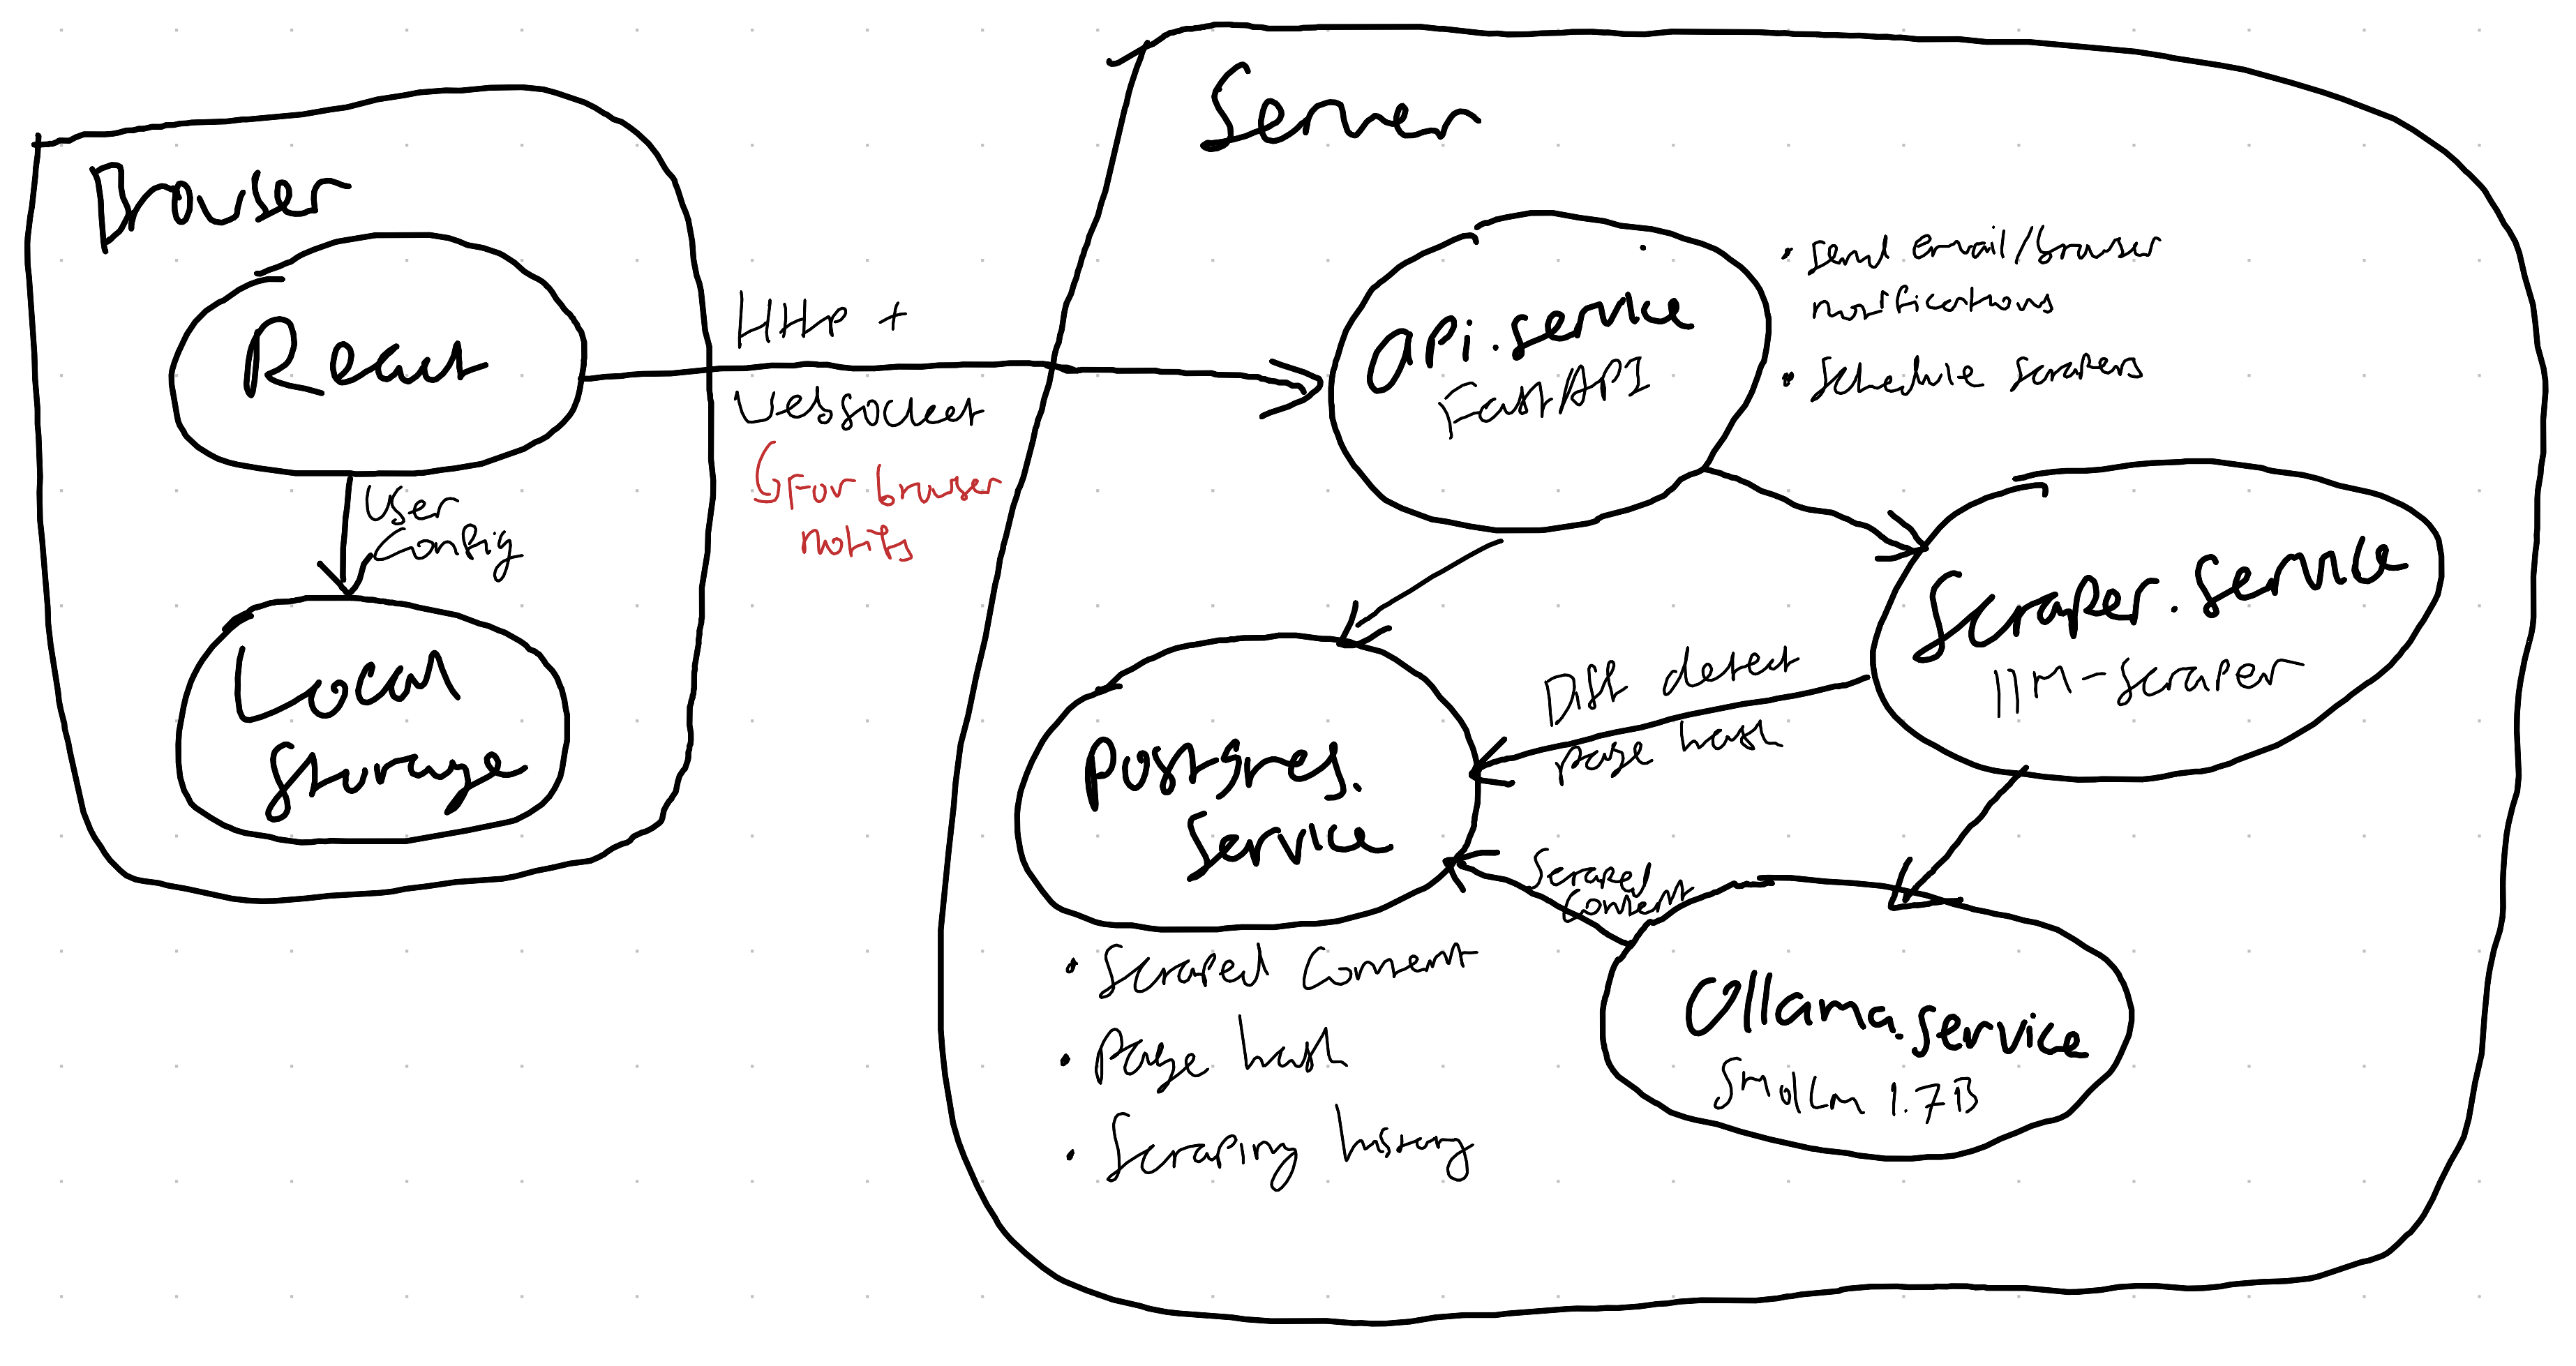 Browser
React
User
Config
Local
Storage
Http +
Websocket
For browser
notifs
Server
api.service
FastAPI
• Send email/browser
notifications
• Schedule scrapers
Scraper.service
llM-scraper
Diff detect
page hash
Postgres.
Service
Scraped
Content
• Scraped Content
• Page hash
• Scraping history
Ollama.service
SmolLm 1.7B